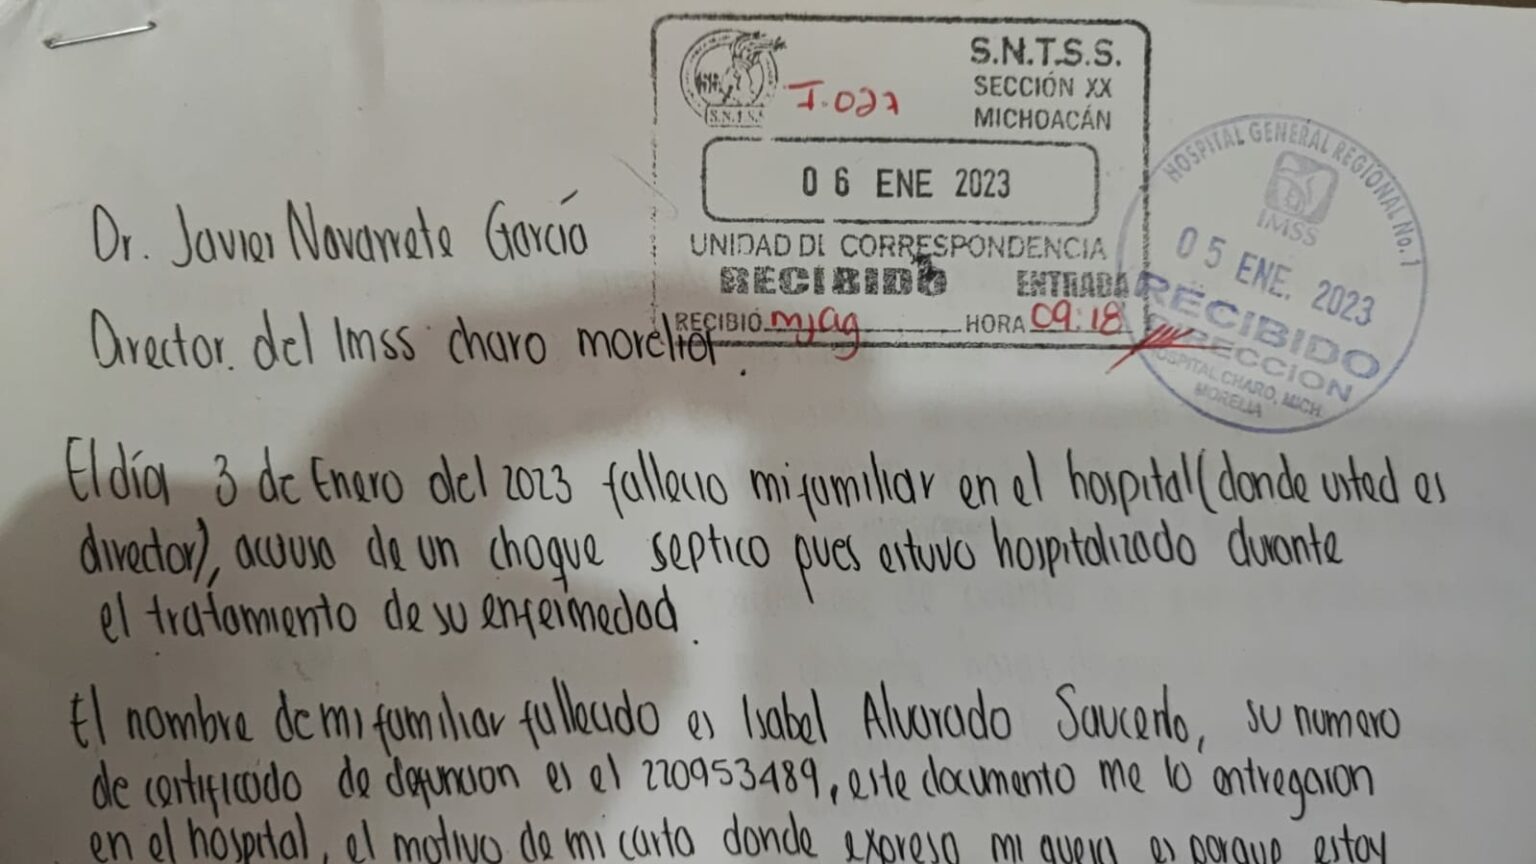 S.N.T.S.S.
SECCIÓN XX
MICHOACÁN
S.N.T.S.S.
I.027
06 ENE 2023
UNIDAD DE CORRESPONDENCIA
RECIBIDO ENTRADA
RECIBIÓ mjag HORA 09:18
HOSPITAL GENERAL REGIONAL No. 1
IMSS
05 ENE. 2023
RECIBIDO
DIRECCION
HOSPITAL CHARO, MICH.
MORELIA
Dr. Javier Navarrete García
Director. del Imss charo morelia.
El día 3 de Enero del 2023 fallecio mi familiar en el hospital (donde usted es
director), acausa de un choque septico pues estuvo hospitalizado durante
el tratamiento de su enfermedad.
El nombre de mi familiar fallecido es Isabel Alvarado Saucedo, su numero
de certificado de defuncion es el 220953489, este documento me lo entregaron
en el hospital, el motivo de mi carta donde expreso mi queja es porque estoy